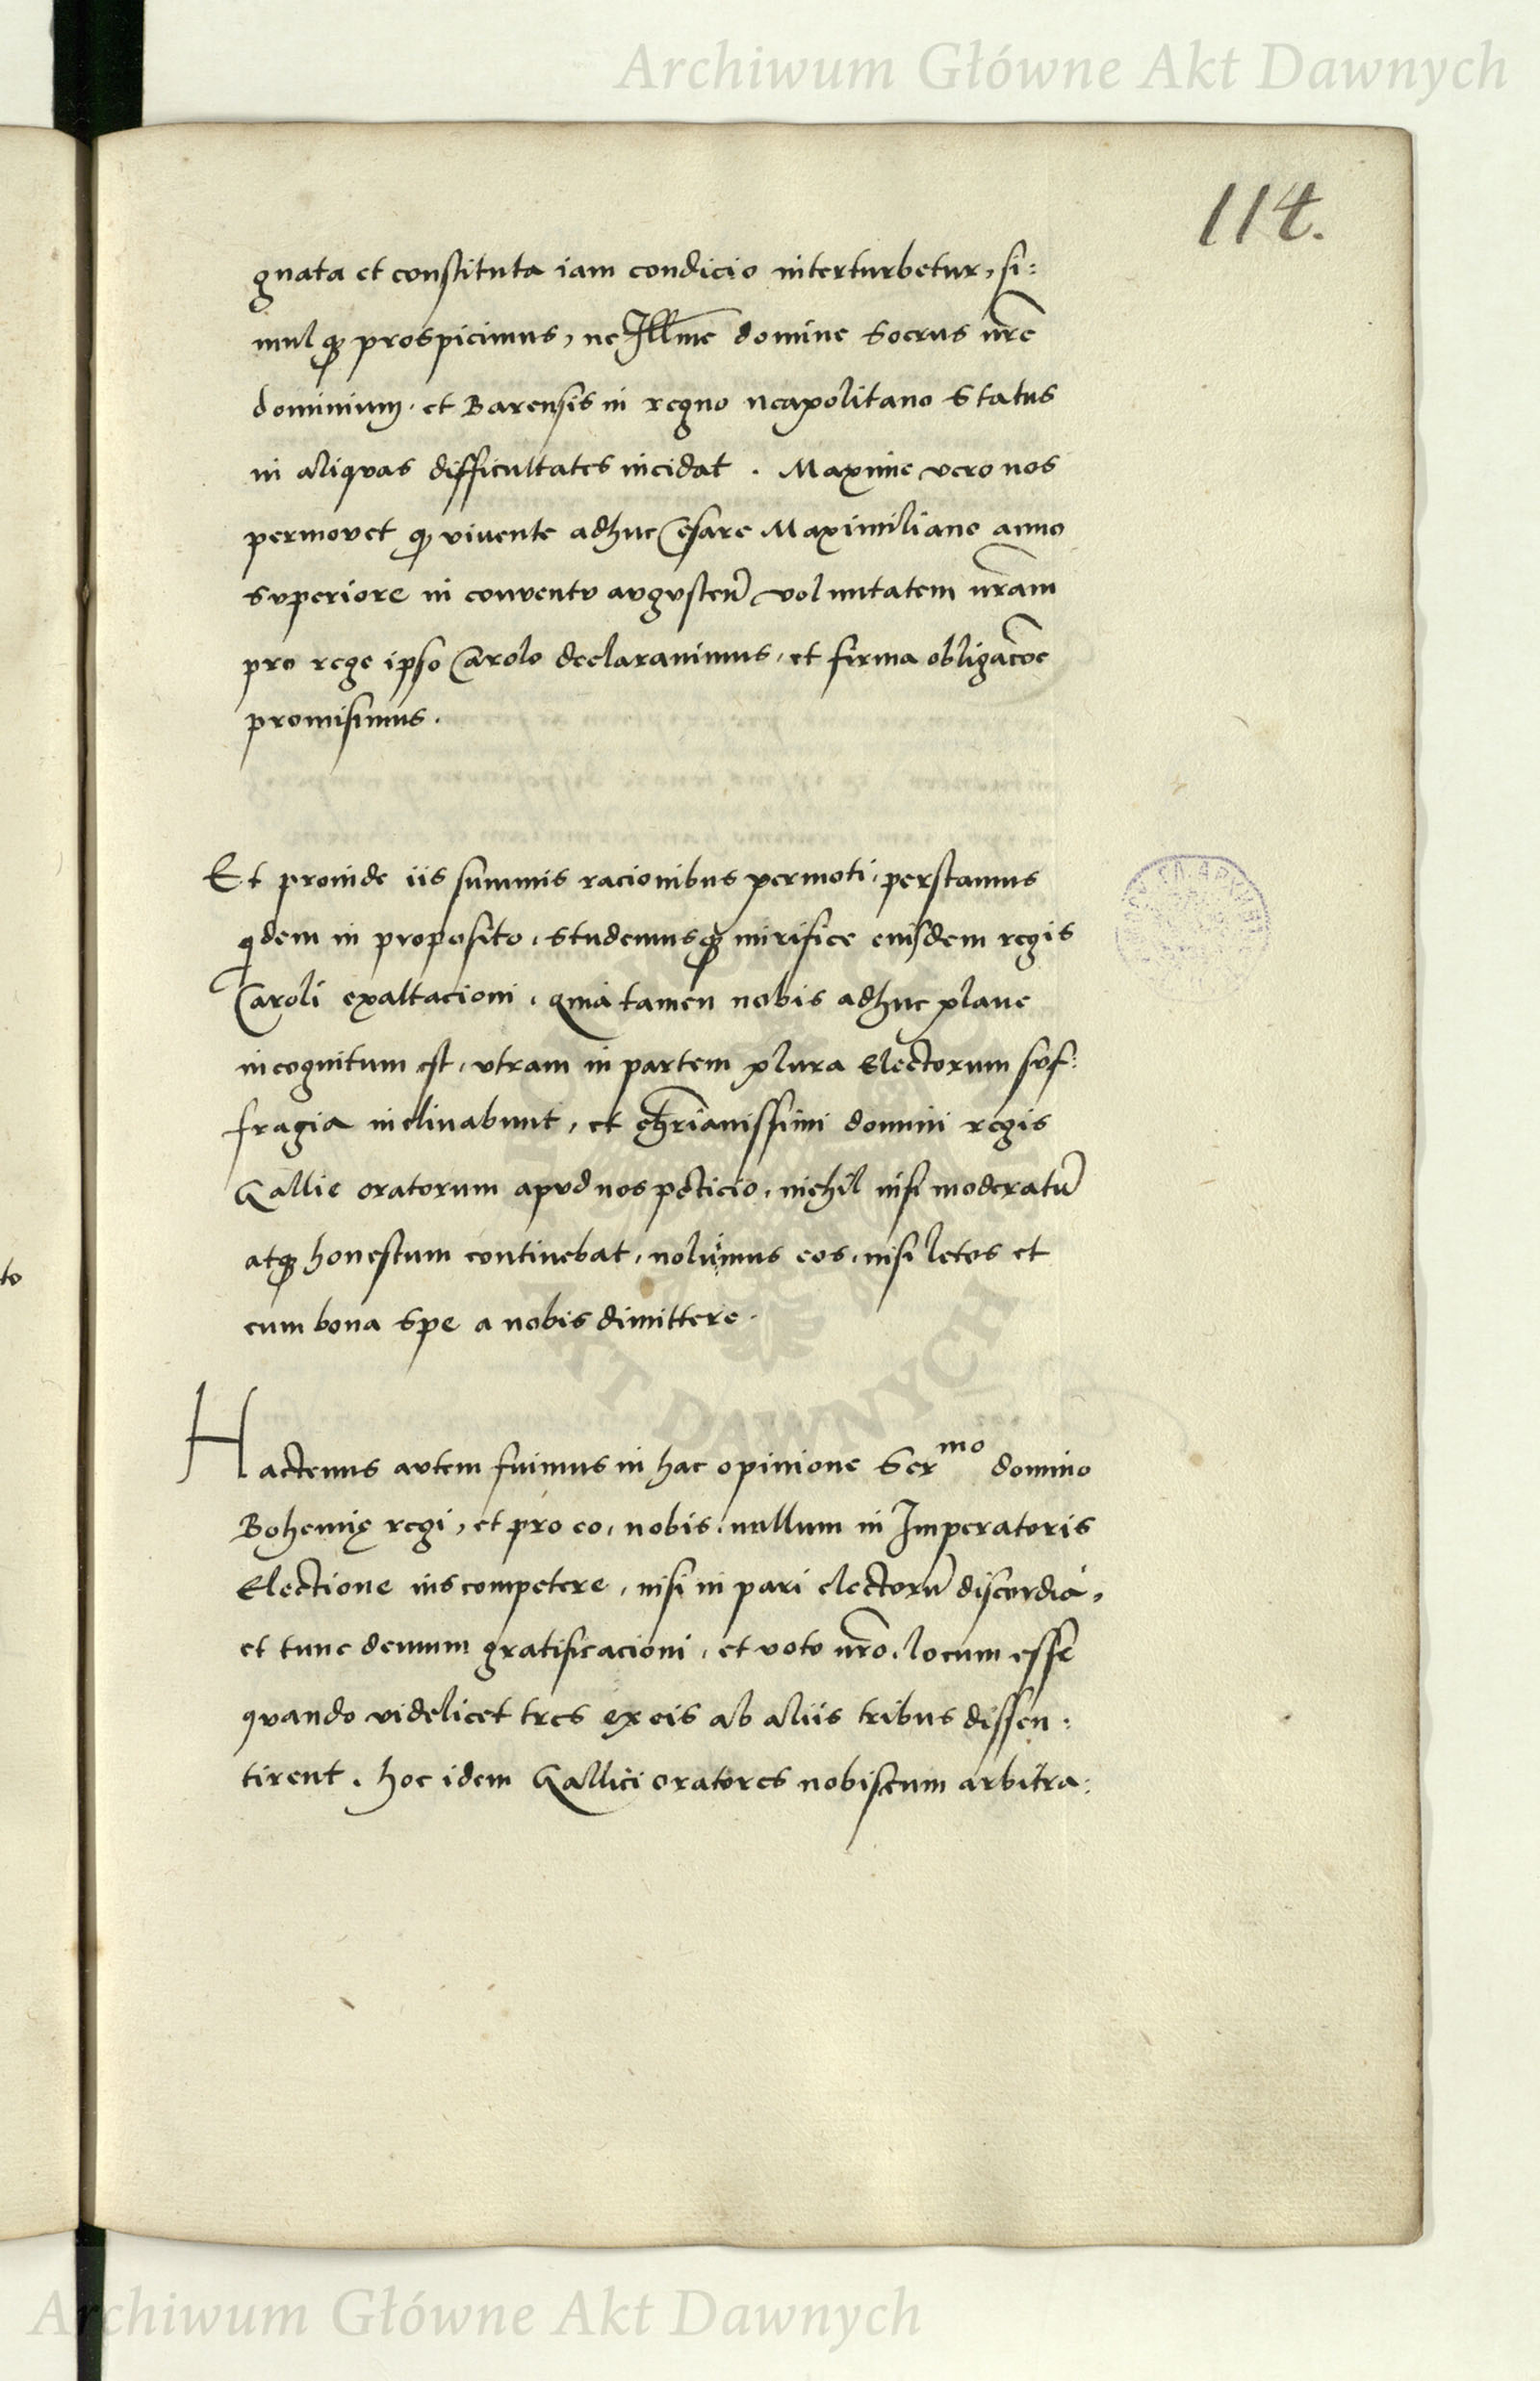 Archiwum Główne Akt Dawnych
114.
gnata et constituta iam condicio interturbetur, si:
mulq3 prospicimus, ne Illme domine Socrus nr̃e
dominium. et Barensis in regno neapolitano Status
in aliquas difficultates incidat. Maxime vero nos
permovet q3 vivente adhuc Cesare Maximiliano anno
superiore in conventu augusteñ voluntatem nr̃am
pro rege ipso Carolo declaravimus, et firma obligac̃oe
promisimus.
Et proinde iis summis racionibus permoti, perstamus
qdem in proposito, studemusq3 mirifice eiusdem regis
Caroli exaltacioni, quia tamen nobis adhuc plane
incognitum est, utram in partem plura Electorum suf:
fragia inclinabunt, et chr̃ianissimi domini regis
Gallie oratorum apud nos peticio, nichil nisi moderatũ
atq3 honestum continebat, noluimus eos, nisi letos et
cum bona spe a nobis dimittere.
Hactenus autem fuimus in hac opinione Ser^mo domino
Bohemię regi, et pro eo, nobis, nullum in Imperatoris
Electione ius competere, nisi in pari electorũ discordia,
et tunc demum gratificacioni, et voto nr̃o, locum esse
quando videlicet tres ex eis ab aliis tribus dissen:
tirent. hoc idem Gallici oratores nobiscum arbitra:
to
AKT DAWNYCH
Archiwum Główne Akt Dawnych